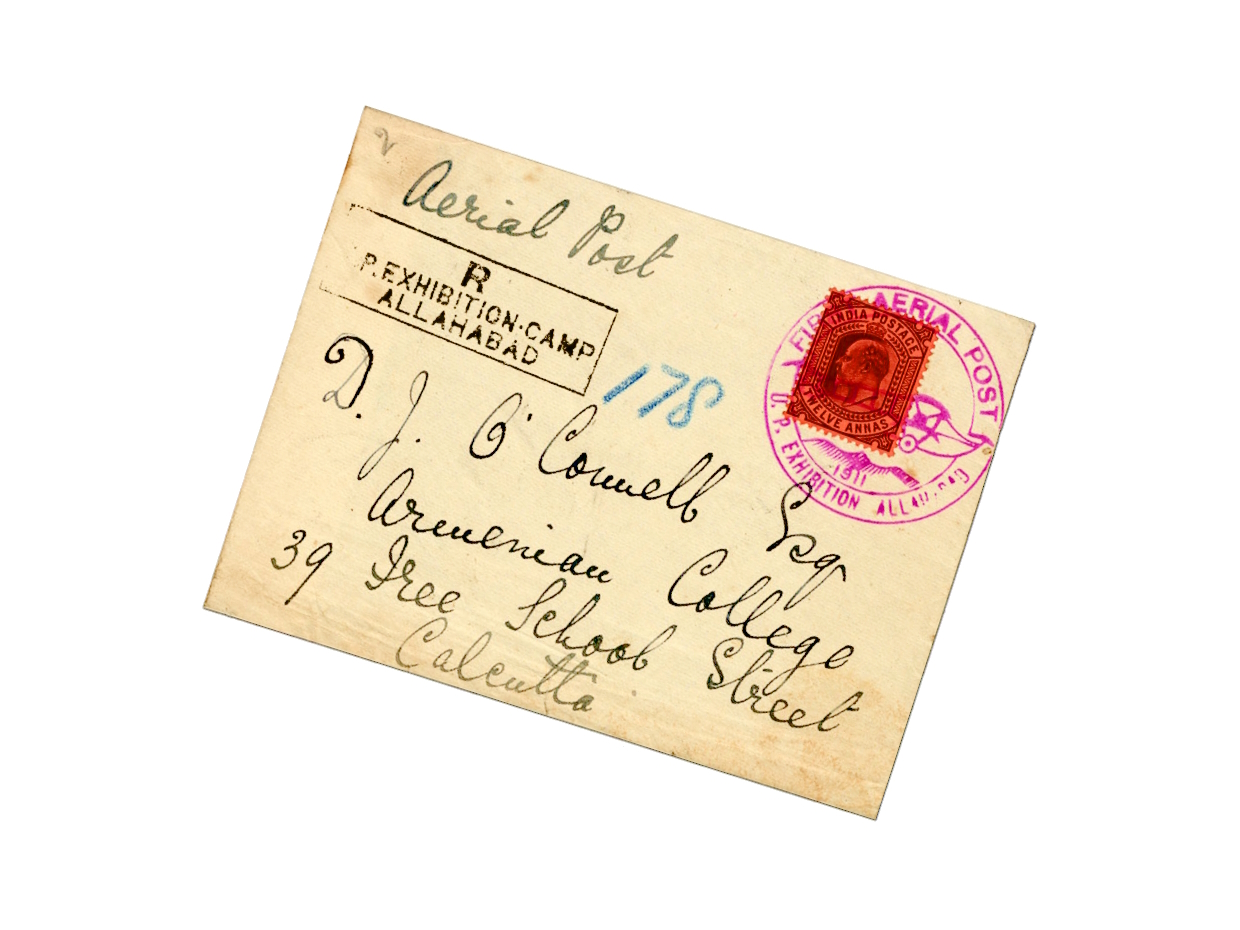 Aerial Post
R
P. EXHIBITION·CAMP
ALLAHABAD
178
FIRST AERIAL POST
1911
U. P. EXHIBITION ALLAHABAD
INDIA POSTAGE
TWELVE ANNAS
D. J. O'Connell Esq
Armenian College
39 Free School Street
Calcutta